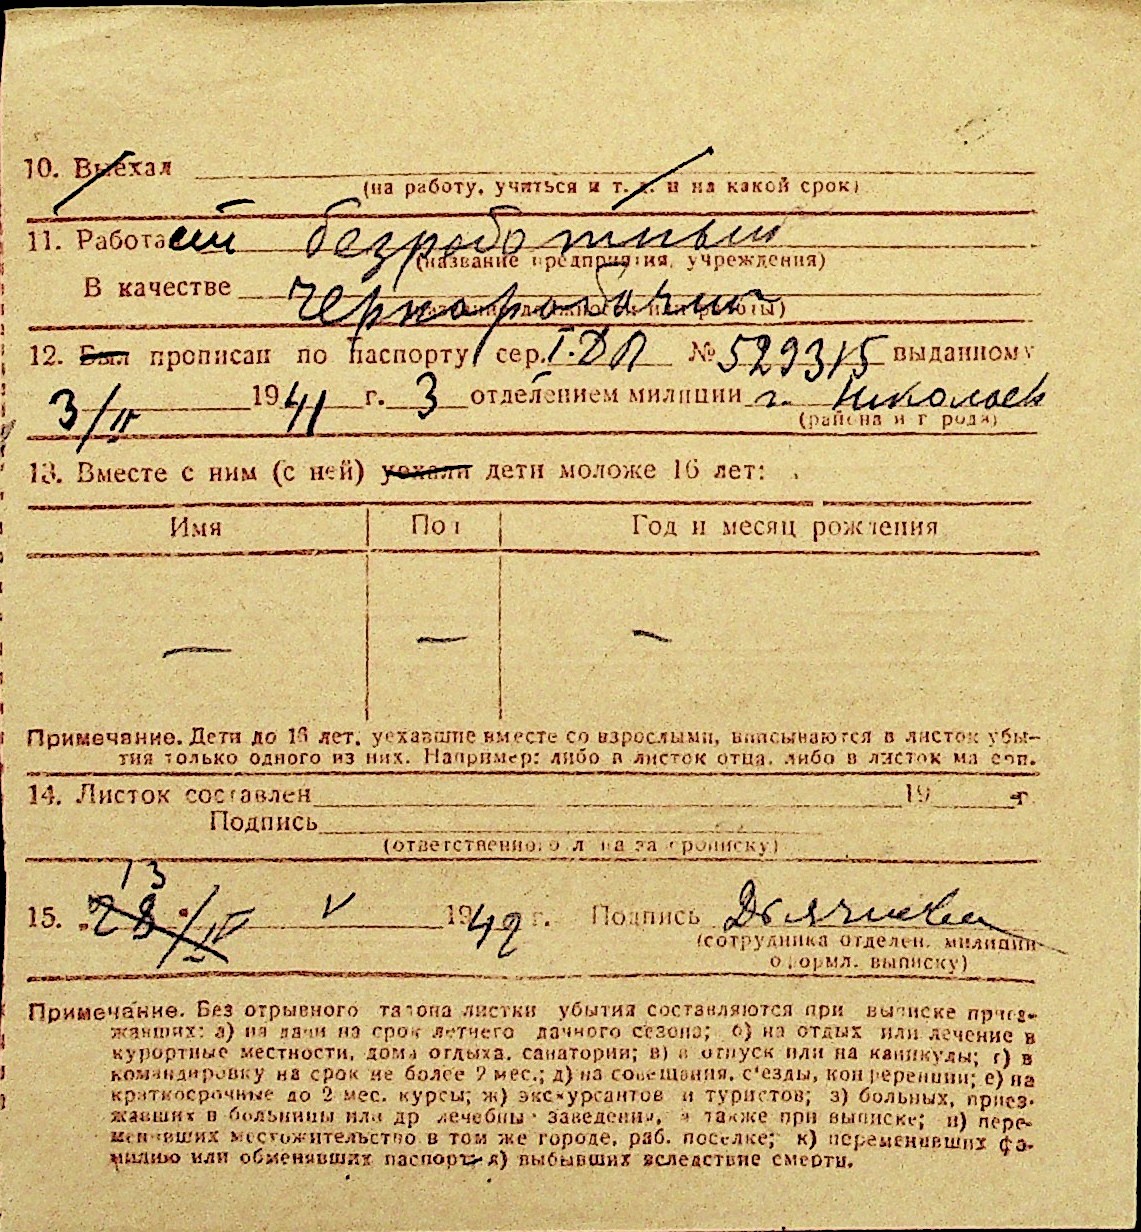 10. Выехал
(на работу, учиться и т. д. и на какой срок)
11. Работает безработный
(название предприятия, учреждения)
В качестве чернорабочий
12. Был прописан по паспорту сер. I.ДП № 529315 выданному
3/IV 1941 г. 3 отделением милиции г. Николаев
(района и города)
13. Вместе с ним (с ней) уехали дети моложе 16 лет:
Имя Пол Год и месяц рождения
— — —
Примечание. Дети до 16 лет, уехавшие вместе со взрослыми, вписываются в листок убы-
тия только одного из них. Например: либо в листок отца, либо в листок матери.
14. Листок составлен 19 г.
Подпись
(ответственного лица за прописку)
13
15. „28“/IV V 1942 г. Подпись
(сотрудника отделен. милиции
оформл. выписку)
Примечание. Без отрывного талона листки убытия составляются при выписке приез-
жавших: а) на дачи на срок летнего дачного сезона; б) на отдых или лечение в
курортные местности, дома отдыха, санатории; в) в отпуск или на каникулы; г) в
командировку на срок не более 2 мес.; д) на совещания, с'езды, конференции; е) на
краткосрочные до 2 мес. курсы; ж) экскурсантов и туристов; з) больных, приез-
жавших в больницы или др лечебны заведения, а также при выписке; и) пере-
менивших местожительство в том же городе, раб. поселке; к) переменивших фа-
милию или обменявших паспорт л) выбывших вследствие смерти.